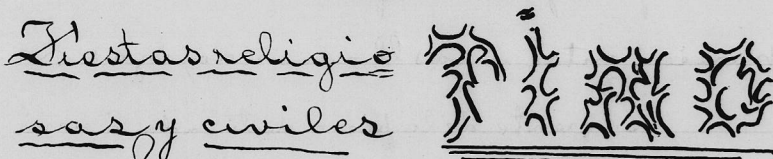 Fiestas religio
sas y civiles